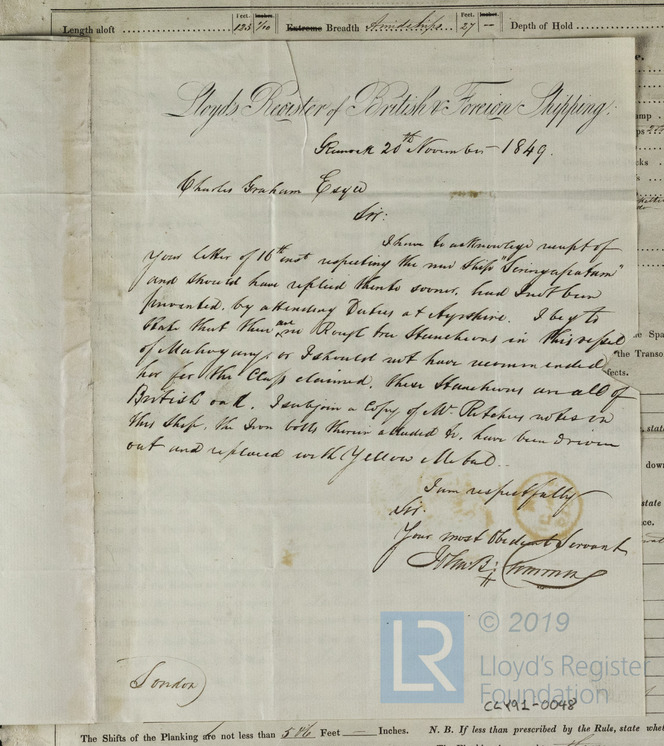 Length aloft 123 1/10 Extreme Breadth Amidships 27 Depth of Hold
Feet. Inches. Feet. Inches.
Lloyd's Register of British & Foreign Shipping.
Greenock 20th November 1849.
Charles Graham Esqre
Sir:
I have to acknowledge receipt of
Your letter of 16th inst respecting the new Ship "Seringapatam"
and should have replied thereto sooner, had I not been
prevented, by attending Duties at Ayrshire. I beg to
State that there are no Rough tree Stancheons in this vessel
of Mahogany, or I should not have recommended
her for the Class claimed, these Stancheons are all of
British oak. I subjoin a Copy of Mr notes on
this Ship, the Iron bolts therein alluded to, have been driven
out and replaced with Yellow Metal.
I am respectfully
Sir
Your most Obedient Servant
John B:
London
© 2019
LR
Lloyd's Register
Foundation
CLY91-0048
The Shifts of the Planking are not less than Feet Inches.
N. B. If less than prescribed by the Rule, state
the Transo